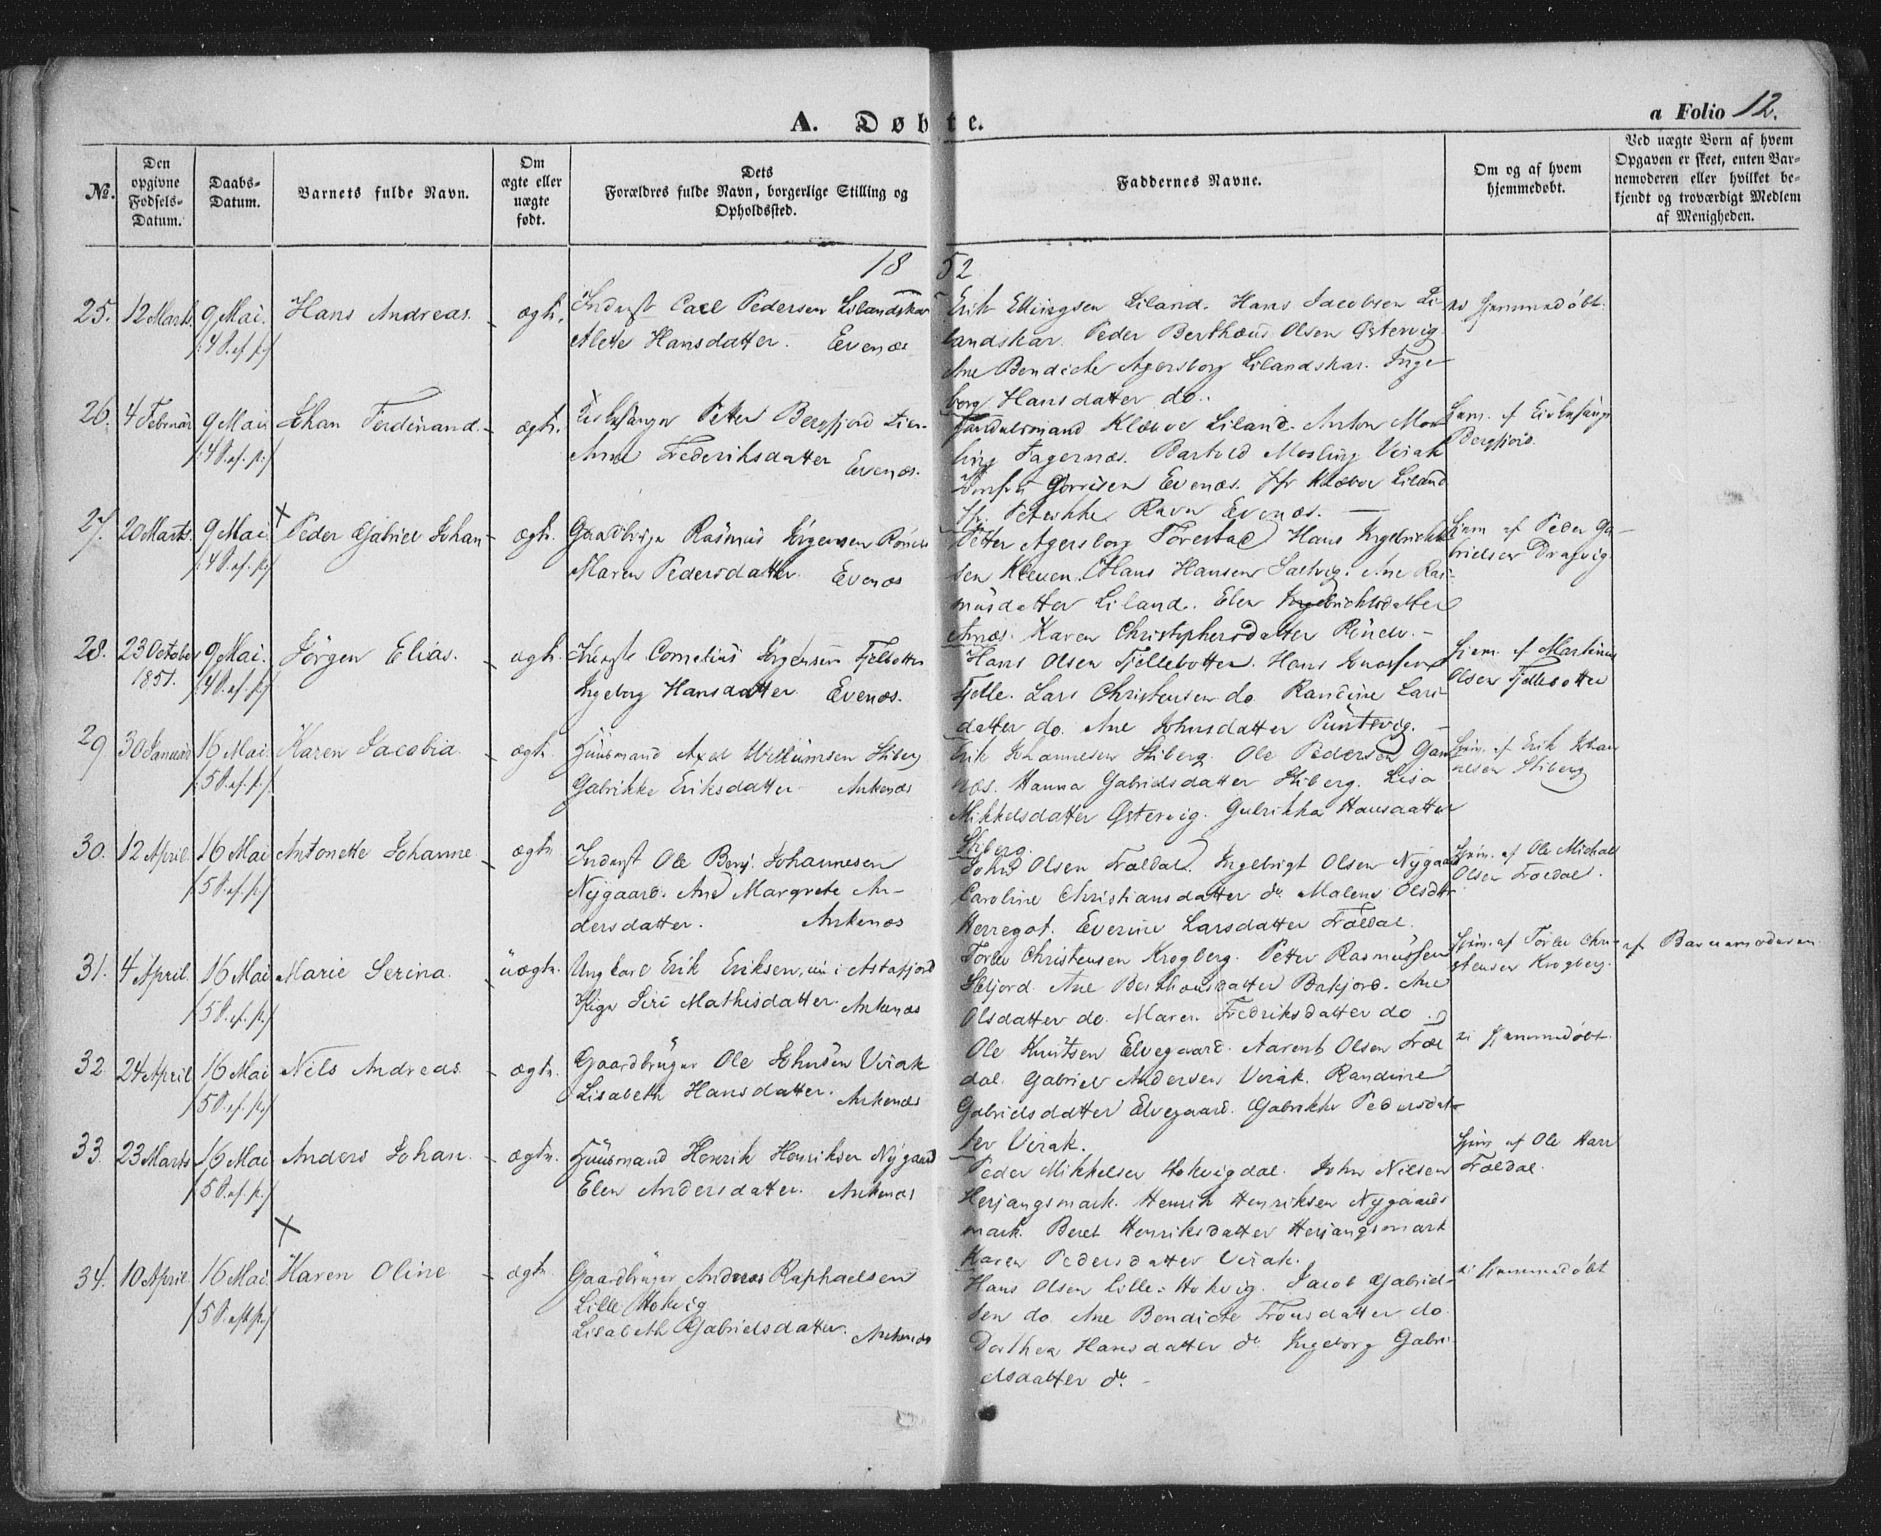 A. Døbte.
a Folio 12.
№.
Den opgivne Fødsels-Datum.
Daabs-Datum.
Barnets fulde Navn.
Om ægte eller uægte født.
Dets Forældres fulde Navn, borgerlige Stilling og Opholdssted.
Faddernes Navne.
Om og af hvem hjemmedøbt.
Ved uægte Børn af hvem Opgaven er skeet, enten Barnemoderen eller hvilket bekjendt og troværdigt Medlem af Menigheden.
1852
25. 12 Marts. 9 Mai. Hans Andreas. ægte. Inderst Carl Pedersen Lilandskar
/:4 S. ef. p:/ Alette Hansdatter. Evenæs
Erik Ellingsen Liland. Hans Jacobsen Li-
landskar. Peder Berthæus Olsen Østervig
Ane Bendicte Agersborg Lilandskar. Inge-
borg Hansdatter do.
ei hjemmedøbt.
26. 4 Februar 9 Mai Johan Ferdinand. ægte. Peter Bergfjord Lien
/:4 S. ef. p:/ Anne Frederiksdatter Evenæs.
Handelsmand Klæboe Liland. Anton Mos-
ling Fagernæs. Bartold Mosling Virak
Gørrisen Evenæs. Jfr Klæboe Liland
Jfr. Petrikke Ravn Evenæs. —
Hjem. af Kirkesanger
Bergfjord.
27. 20 Marts. 9 Mai × Peder Gabriel Johan ægte. Gaardbruger Rasmus Jørgensen
/:4 S. ef. p:/ Maren Pedersdatter. Evenæs
Petter Agersborg Forestad Hans Ingebrigt-
sen Kleven. Hans Hansen Saltvig. Ane Ras-
musdatter Liland. Elen Ingebrichtsdatter
Annæs. Karen Christophersdatter
Hjem. af Peder Ga-
brielsen Dragvig
28. 23 October 1851. 9 Mai. Jørgen Elias. ægte. Inderste Cornelius Jørgensen Fjelbotten
/:4 S. ef. p:/ Ingeborg Hansdatter. Evenæs.
Hans Olsen Fjellebotten. Hans Jonassen
Fjelle. Lars Christensen do. Randine Lars-
datter do. Ane Johnsdatter Puntsvig. —
Hjem. af Martinus
Olsen Fjellebotten
29 30 Januar 16 Mai Karen Jacobia. ægte Huusmand Axel Willumsen Stiberg
/:5 S. ef. p:/ Gabrikke Eriksdatter. Ankenæs
Erik Johannesen Stiberg. Ole Pedersen
næs. Hanna Gabrielsdatter Stiberg. Lisa
Mikkelsdatter Østervig. Gabrikka Hansdatter
Stiberg.
Hjem. af Erik Johan-
nesen Stiberg
30. 12 April. 16 Mai Antonette Johanne. ægte Inderst Ole Benj. Johannesen
/:5 S. ef. p:/ Nygaard. Ane Margrete An-
dersdatter. Ankenæs
John Olsen Trældal. Ingebrigt Olsen Nygaard
Caroline Christiansdatter do. Malene Olsdtr
Herregot. Everine Larsdatter Trældal.
Hjem. af Ole Michal
Olsen Trældal.
31. 4 April. 16 Mai Marie Serina. uægte. Ungkarl Erik Eriksen, nu i Astafjord
/:5 S. ef. p:/ Pige Siri Mathisdatter. Ankenæs
Torber Christensen Krogberg. Petter Rasmussen
Skjord. Ane Berthousdatter Bakjord. Ane
Olsdatter do. Maren Fredriksdatter do.
Hjem. af Torber Chri-
stensen Krogberg.
af Barnemoderen
32. 24 April 16 Mai Nils Andreas. ægte. Gaardbruger Ole Johnsen Virak
/:5 S. ef. p:/ Lisabeth Hansdatter. Ankenæs
Ole Knutsen Elvegaard. Aarent Olsen Træl
dal. Gabriel Andersen Virak. Randine
Gabrielsdatter Elvegaard. Gabrikke Pedersdat-
ter Virak.
ei hjemmedøbt
33. 23 Marts 16 Mai Anders Johan. ægte. Huusmand Henrik Henriksen Nygaard
/:5 S. ef. p:/ Elen Andersdatter. Ankenæs
Peder Mikkelsen Hokvigdal. John Nielsen
Herjangsmark. Henrik Henriksen Nygaards
mark. Beret Henriksdatter Herjangsmark
Karen Pedersdatter Virak.
Hjem. af Ole Hans
Trældal.
34. 10 April. 16 Mai × Karen Oline ægte Gaardbruger Andreas Raphaelsen
/:5 S. eft p:/ Lille Hokvig
Lisabeth Gabrielsdatter. Ankenæs
Hans Olsen Lille-Hokvig. Jacob Gabriel-
sen do. Ane Bendicte Tronsdatter do.
Dorthea Hansdatter do Ingeborg Gabri-
elsdatter do. —
ei hjemmedøbt